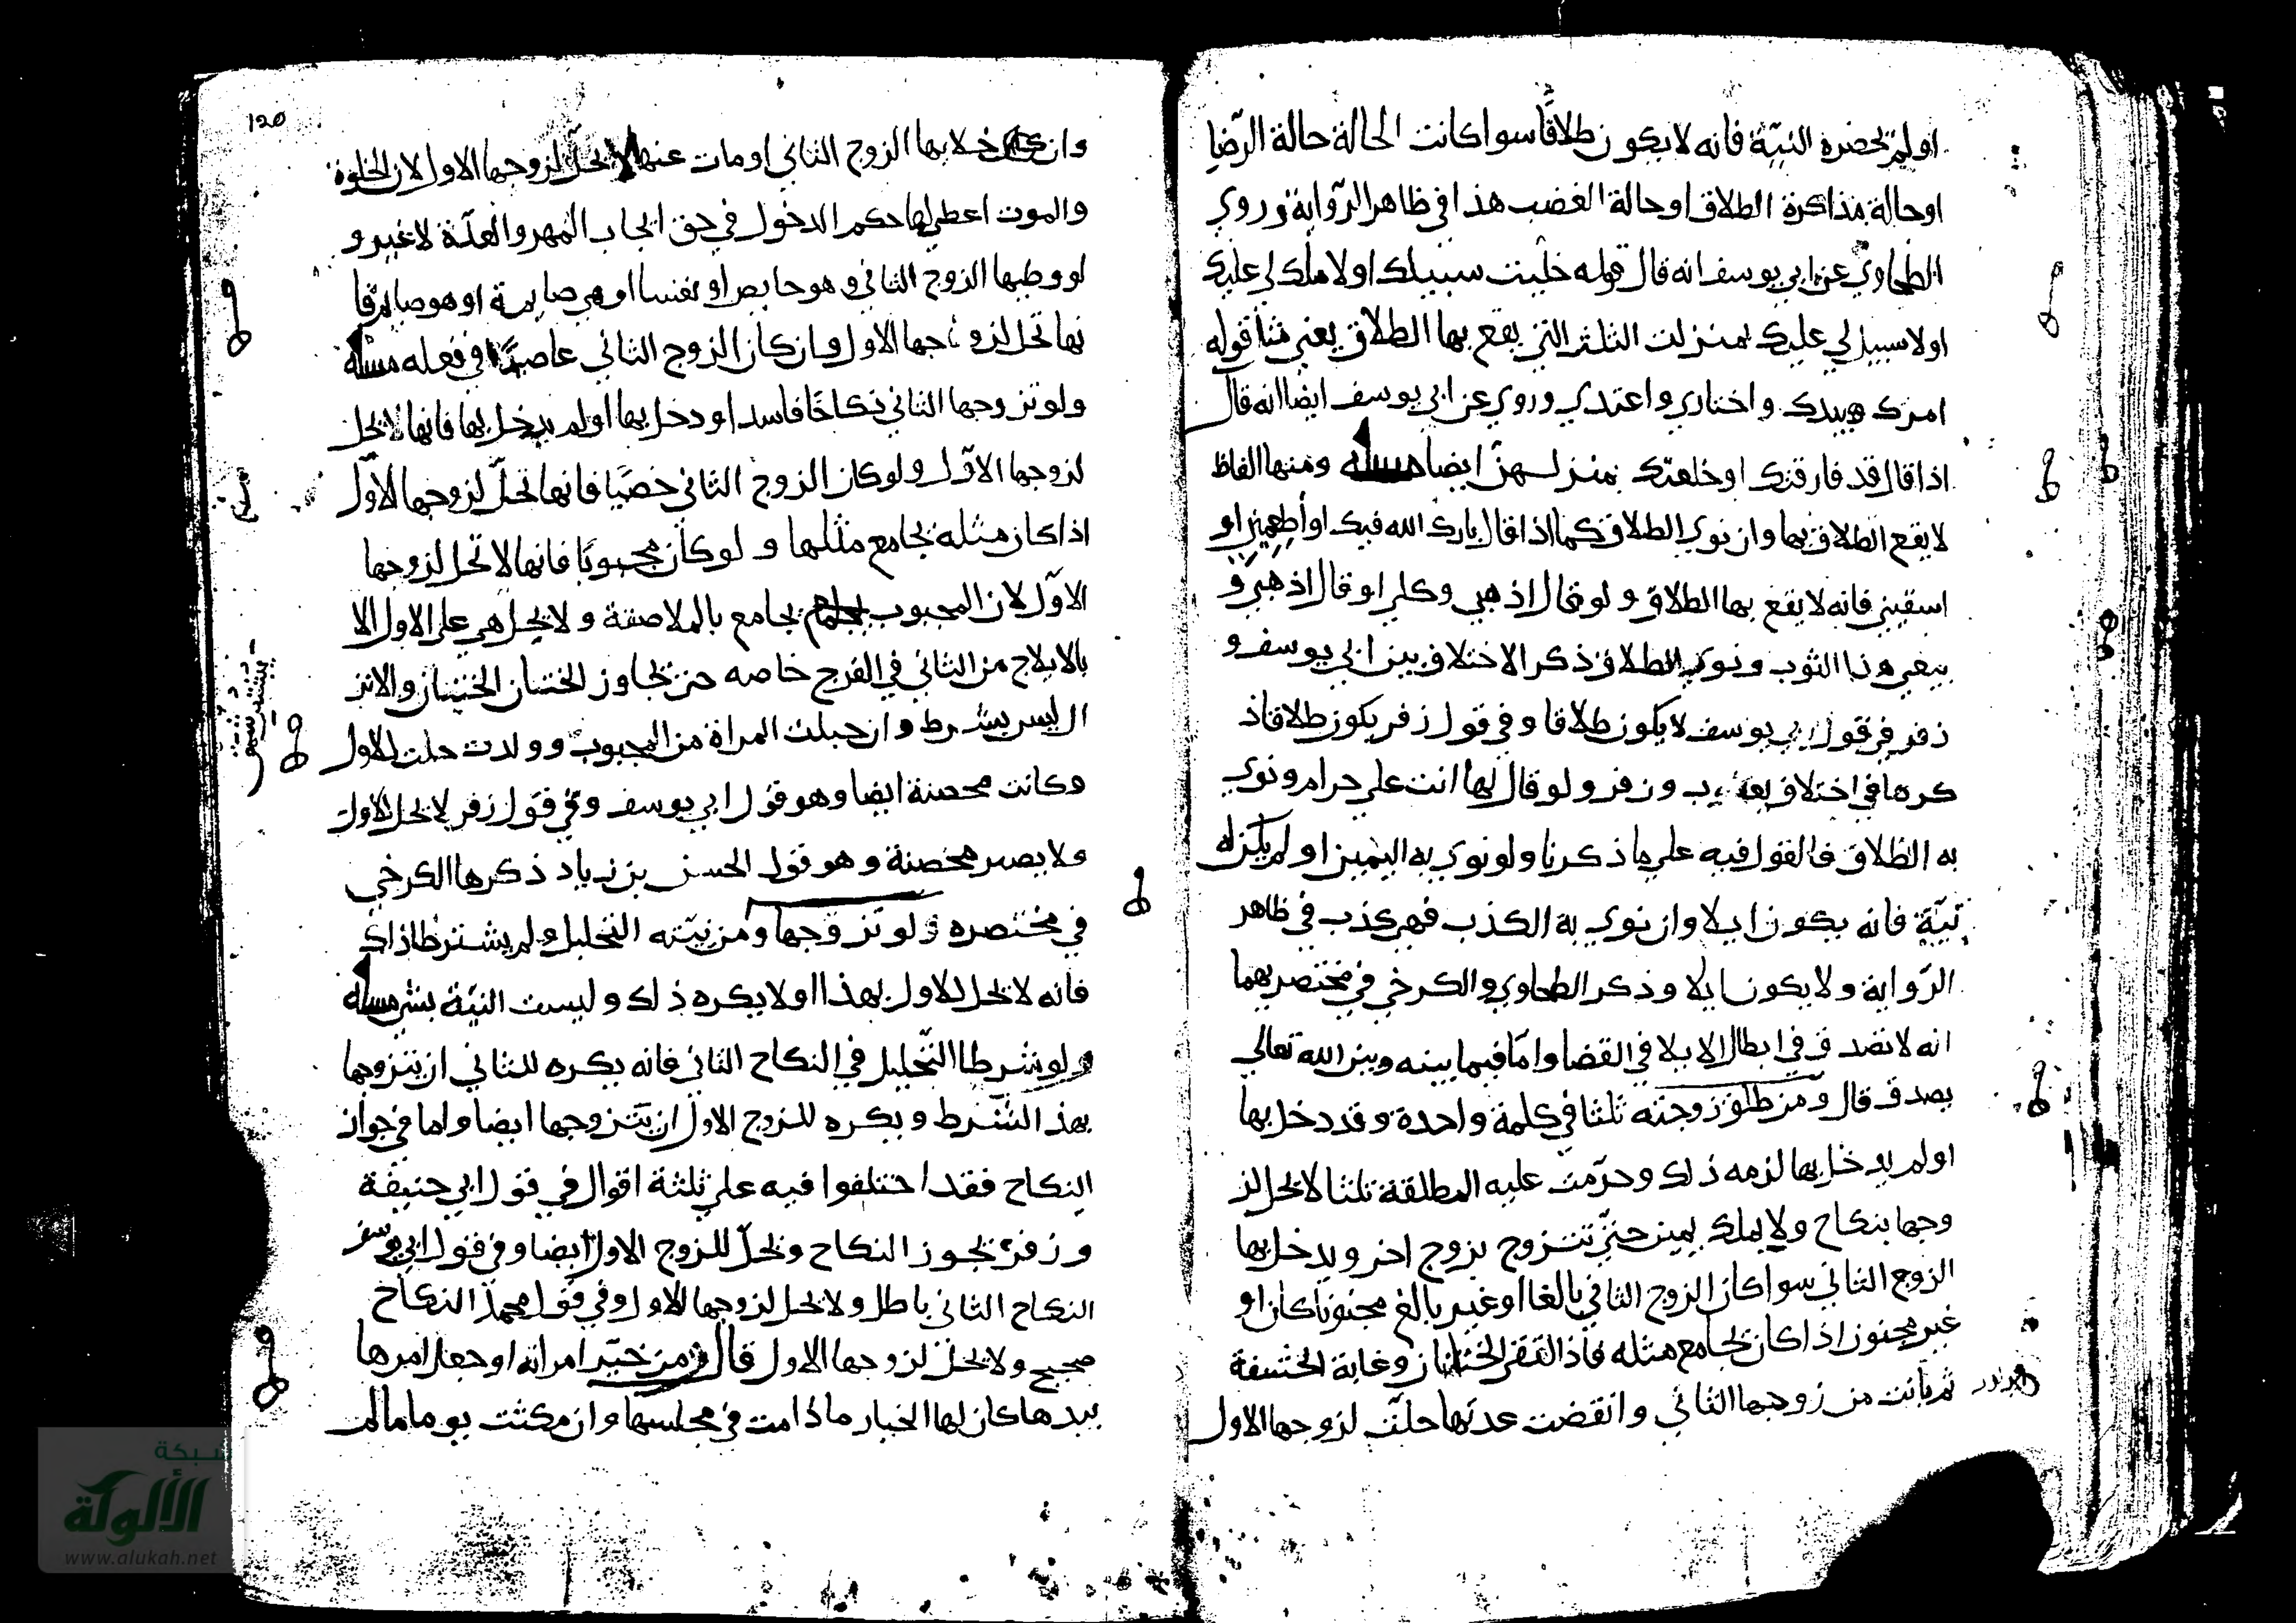 او لم تحضره النيّة فانه لا يكون طلاقًا سوا كانت الحالة حالة الرّضا
او حالة مذاكرة الطلاق او حالة الغضب هذا في ظاهر الرّواية وروي
الطحاوي عن ابي يوسف انه قال قوله خليت سبيلك او لا ملك لي عليك
او لا سبيل لي عليك بمنزلت الثلث التي يقع بها الطلاق يعني قوله
امرك بيدك واختاري واعتدي وروي عن ابي يوسف ايضا انه قال
اذا قال قد فارقتك او خلعتك بمنزلـهن ايضا مسله ومنها الفاظ
لا يقع الطلاق بها وان نوى الطلاق كما اذا قال بارك الله فيك او أطعميني او
اسقيني فانه لا يقع بها الطلاق ولو قال اذهبي وكلي او قال اذهبي و
بيعي هذا الثوب ونوى الطلاق ذكر الاختلاف بين ابي يوسف و
زفر في قول ابي يوسف لا يكون طلاقا وفي قول زفر يكون طلاقا ذ
كرها في اختلاف يعقوب وزفر ولو قال لها انت علي حرام ونوى
به الطلاق فالقول فيه على ما ذكرنا ولو نوى به اليمين او لم يكن له
نيّة فانه يكون ايلا وان نوى به الكذب فهو كذب في ظاهر
الرّواية ولا يكون ايلا وذكر الطحاوي والكرخي في مختصريهما
انه لا تصدق في ابطال الايلا في القضا وامّا فيما بينه وبين الله تعالى
يصدق قال ومن طلق زوجته ثلثا في كلمة واحدة وقد دخل بها
او لم يدخل بها لزمه ذلك وحرّمت عليه المطلقة ثلثا لا تحل لز
وجها بنكاح ولا بملك يمين حتّى تتزوج بزوج اخر ويدخل بها
الزوج الثاني سوا كان الزوج الثاني بالغا او غير بالغ مجنونا كان او
غير مجنون اذا كان يجامع مثله فاذا التقى الختانان وغابة الحشفة
ثم بانت من زوجها الثاني وانقضت عدتها حلّت لزوجها الاول
120
وان خلا بها الزوج الثاني او مات عنها لا تحلّ لزوجها الاول لان الخلوة
والموت اعطي لها حكم الدخول في حق ايجاب المهر والعدّة لا غير و
لو وطيها الزوج الثاني وهو حايض او نفسا او هي صايمة او هو صايم فا
نها تحل لزوجها الاول وان كان الزوج الثاني عاصيًا في فعله مسله
ولو تزوجها الثاني نكاحًا فاسدا ودخل بها او لم يدخل بها فانها لا تحل
لزوجها الاوّل ولو كان الزوج الثاني خصيًا فانها تحلّ لزوجها الاوّل
اذا كان مثله يجامع مثلها ولو كان مجبوبًا فانها لا تحل لزوجها
الاوّل لان المجبوب يجامع بالملاصقة ولا يحل هي على الاول الا
بالايلاج من الثاني في الفرج خاصه حتى يجاوز الختان الختنان والانز
ال ليس بشرط وان حبلت المراة من المجبوب وولدت حلت للاول
وكانت محصنة ايضا وهو قول ابي يوسف وفي قول زفر لا تحل للاول
ولا يصير محصنة وهو قول الحسن بن زياد ذكرها الكرخي
في مختصره ولو تزوجها ومن نيّته التحليل ولم يشترطا ذلك
فانه لا تحل للاول بهذا او لا يكره ذلك وليست النيّة بشي مسله
ولو شرطا التّحليل في النكاح الثاني فانه يكره للثاني ان يتزوجها
بهذ الشّرط ويكره للزوج الاول ان يتزوجها ايضا واما في جواز
النكاح فقد اختلفوا فيه على ثلثة اقوال في قول ابي حنيفة
وزفر يجوز النكاح وتحلّ للزوج الاول ايضا وفي قول ابي يوسف
النكاح الثاني باطل ولا تحل لزوجها الاول وفي قول محمد النكاح
صحيح ولا تحلّ لزوجها الاول قال ومن خيّر امراته او جعل امرها
بيدها كان لها الخيار ما دامت في مجلسها وان مكثت يوما ما لم
شبكة
الألوكة
www.alukah.net